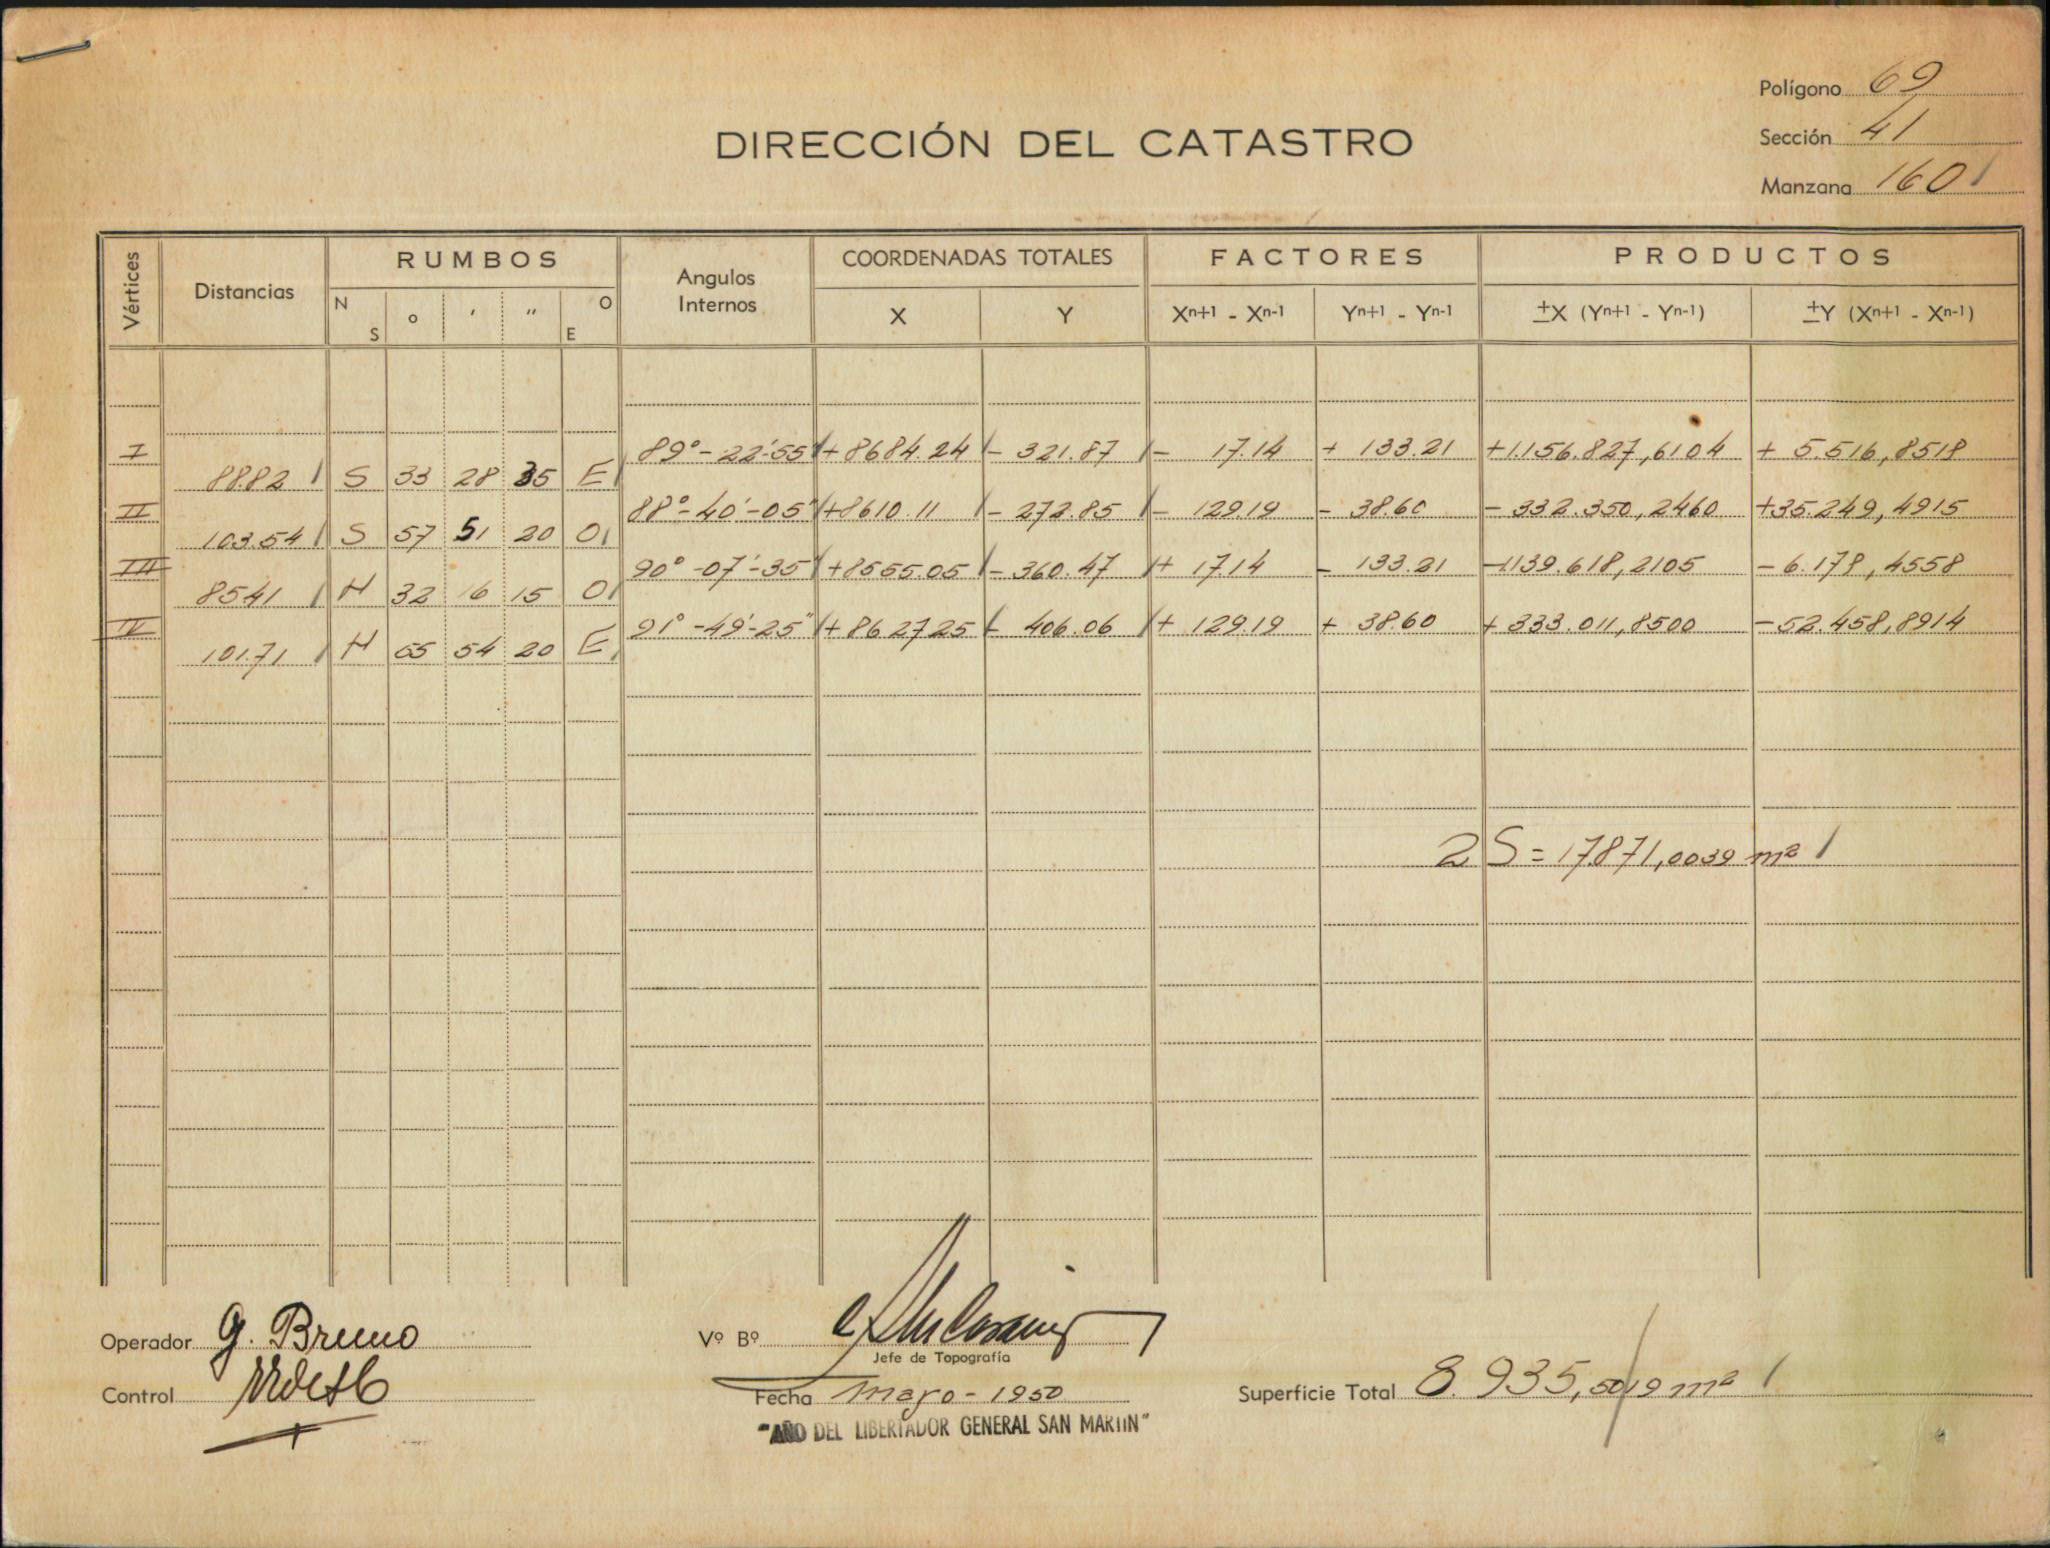 Polígono 69
Sección 41
Manzana 160
DIRECCIÓN DEL CATASTRO
Vértices Distancias RUMBOS Angulos Internos COORDENADAS TOTALES FACTORES PRODUCTOS
N S ° ' " O E X Y Xⁿ⁺¹ - Xⁿ⁻¹ Yⁿ⁺¹ - Yⁿ⁻¹ ±X (Yⁿ⁺¹ - Yⁿ⁻¹) ±Y (Xⁿ⁺¹ - Xⁿ⁻¹)
I 89°-22'-55" +8684.24 - 321.87 - 17.14 + 133.21 +1.156.827,6104 + 5.516,8518
88.82 S 33 28 35 E
II 88°-40'-05" +8610.11 - 272.85 - 129.19 - 38.60 - 332.350,2460 +35.249,4915
103.54 S 57 51 20 O
III 90°-07'-35" +8555.05 - 360.47 + 17.14 - 133.21 -1139.618,2105 - 6.178,4558
85.41 N 32 16 15 O
IV 91°-49'-25" +8627.25 - 406.06 + 129.19 + 38.60 + 333.011,8500 -52.458,8914
101.71 N 55 54 20 E
2 S = 17.871,0039 m²
Operador G. Bruno
Control
Vº Bº
Jefe de Topografía
Fecha mayo - 1950
"AÑO DEL LIBERTADOR GENERAL SAN MARTIN"
Superficie Total 8.935,5019 m²